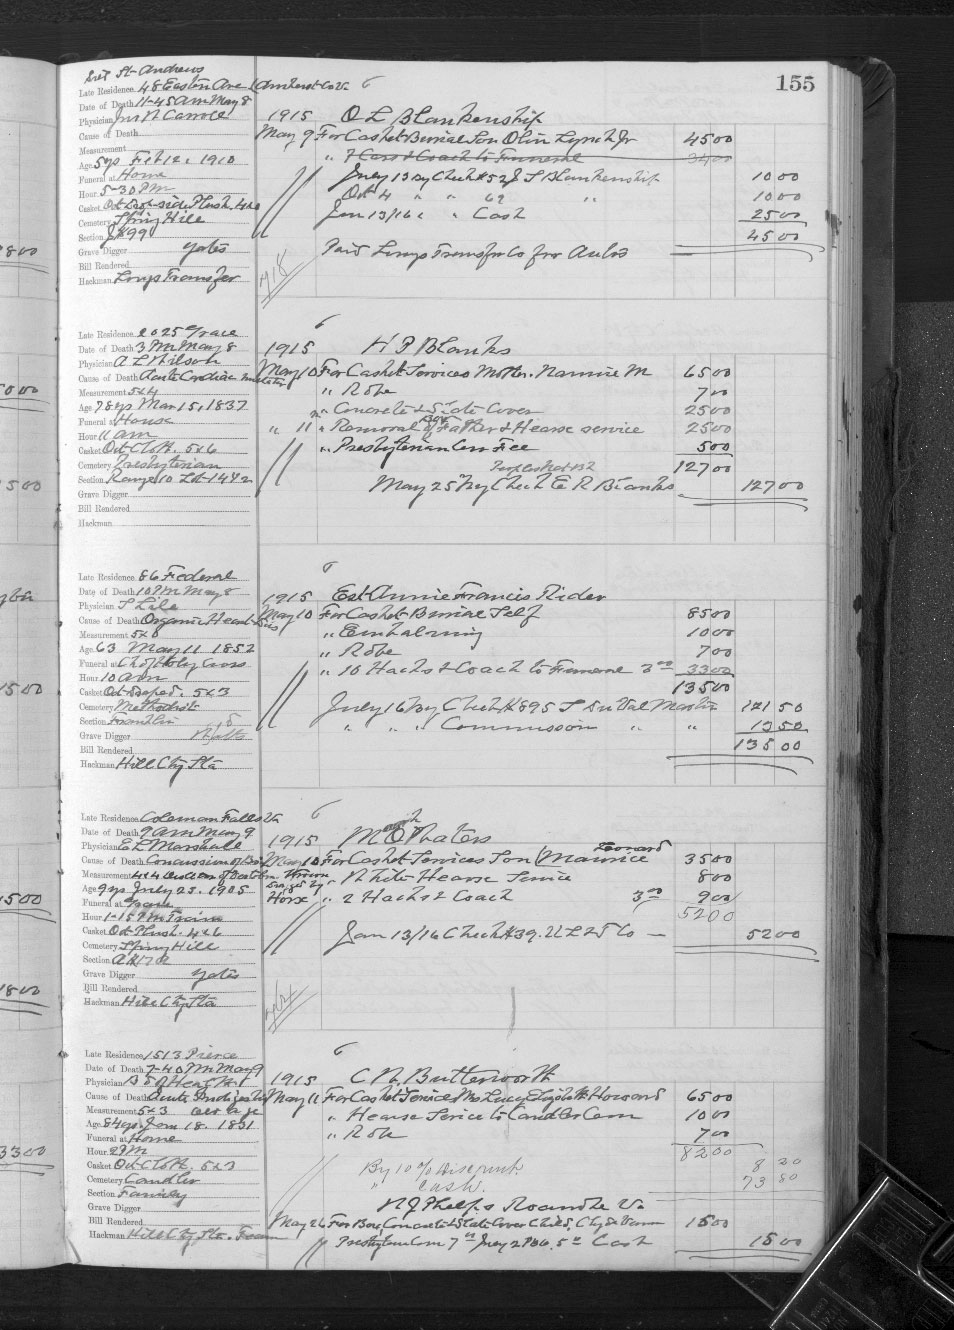 155
St Andrews
Late Residence 48 Easton Ave Amherst Co Va 6
Date of Death 11-45 am May 8
Physician Jno H Carroll
1915 O L Blankenship
Cause of Death
May 9 For Casket Burial Son Olin Lynch Jr 45 00
Measurement
Age 5 ys Feb 12, 1910
" 7 Cars & Coach to Funeral
Funeral at Home
July 13 By Check #52 J S Blankenship 10 00
Hour 5-30 PM
Oct 4 " " 62 " 10 00
Casket
Jan 13/16 " " Cash 25 00
Cemetery Spring Hill
Section J #99
45 00
Grave Digger Yates
Paid Longs Transfer Co for Autos
Bill Rendered
Hackman Longs Transfer
1918
Late Residence 2025 Grace 6
Date of Death 3 PM May 8
1915 H P Blanks
Physician A L Wilson
Cause of Death Acute Cardiac
May 10 For Casket Services Mother. Nannie M 65 00
Measurement 5x4
" Robe 7 00
Age 78 ys Mar 15, 1837
" Concrete & Side Cover 25 00
Funeral at House
" 11 " Removal Box of Father & Hearse service 25 00
Hour 11 am
" Presbyterian Cem Fee 5 00
Casket Oct Cloth. 5x6
Cemetery Presbyterian
127 00
Section Range 10 Lot 14
May 25 By Check E R Blanks 127 00
Grave Digger
Bill Rendered
Hackman
Late Residence 86 Federal 8
Date of Death 10 PM May 8
1915 Est Annie Francis Rider
Physician S Lile
Cause of Death Organic Heart Dis
May 10 For Casket Burial Self 85 00
Measurement 5x8
" Embalming 10 00
Age 63 May 11 1852
" Robe 7 00
Funeral at Ch of Holy Cross
" 10 Hacks & Coach to Funeral 3 00 33 00
Hour 10 am
135 00
Casket Oct Draped. 5x3
Cemetery Methodist
July 16 By Check #895 S DuVal Martin 121 50
Section Franklin
" " " Commission " " 13 50
Grave Digger
135 00
Bill Rendered
Hackman Hill City Sta
Late Residence Coleman Falls Va 6
Date of Death 9 am May 9
Physician E L Marshall
1915
Leonard
Cause of Death Concussion of Brain
May 10 For Casket Services Son Maurice 35 00
Measurement 4x4
Thrown
" White Hearse Service 8 00
Age 9 ys July 23, 1905
Horse " 2 Hacks & Coach 3 00 9 00
Funeral at Grave
52 00
Hour 1-15 PM Train
Casket Oct Plush. 4x6
Jan 13/16 Check #39. 52 00
Cemetery Spring Hill
Section
Grave Digger Yates
Bill Rendered
Hackman Hill City Sta
Late Residence 1513 Pierce 6
Date of Death 7-40 PM May 9
Physician B of Health
1915 C N. Butterworth
Cause of Death Acute Indigestion
May 11 For Casket Services Mrs Lucy Elizabeth Howard 65 00
Measurement 5x3 average
" Hearse Service to Candler Cem 10 00
Age 84 ys. Jan 18. 1831
" Robe 7 00
Funeral at Home
82 00
Hour 2 PM
Casket Oct Cloth. 5x3
By 10 % Discount 8 20
Cemetery Candler
" Cash. 73 80
Section Family
N J Phelps Roanoke Va
Grave Digger
Bill Rendered
May 26 For Box Concrete & Slate Cover Child, 15 00
Hackman Hill City Sta.
Presbyterian Cem Cash 15 00